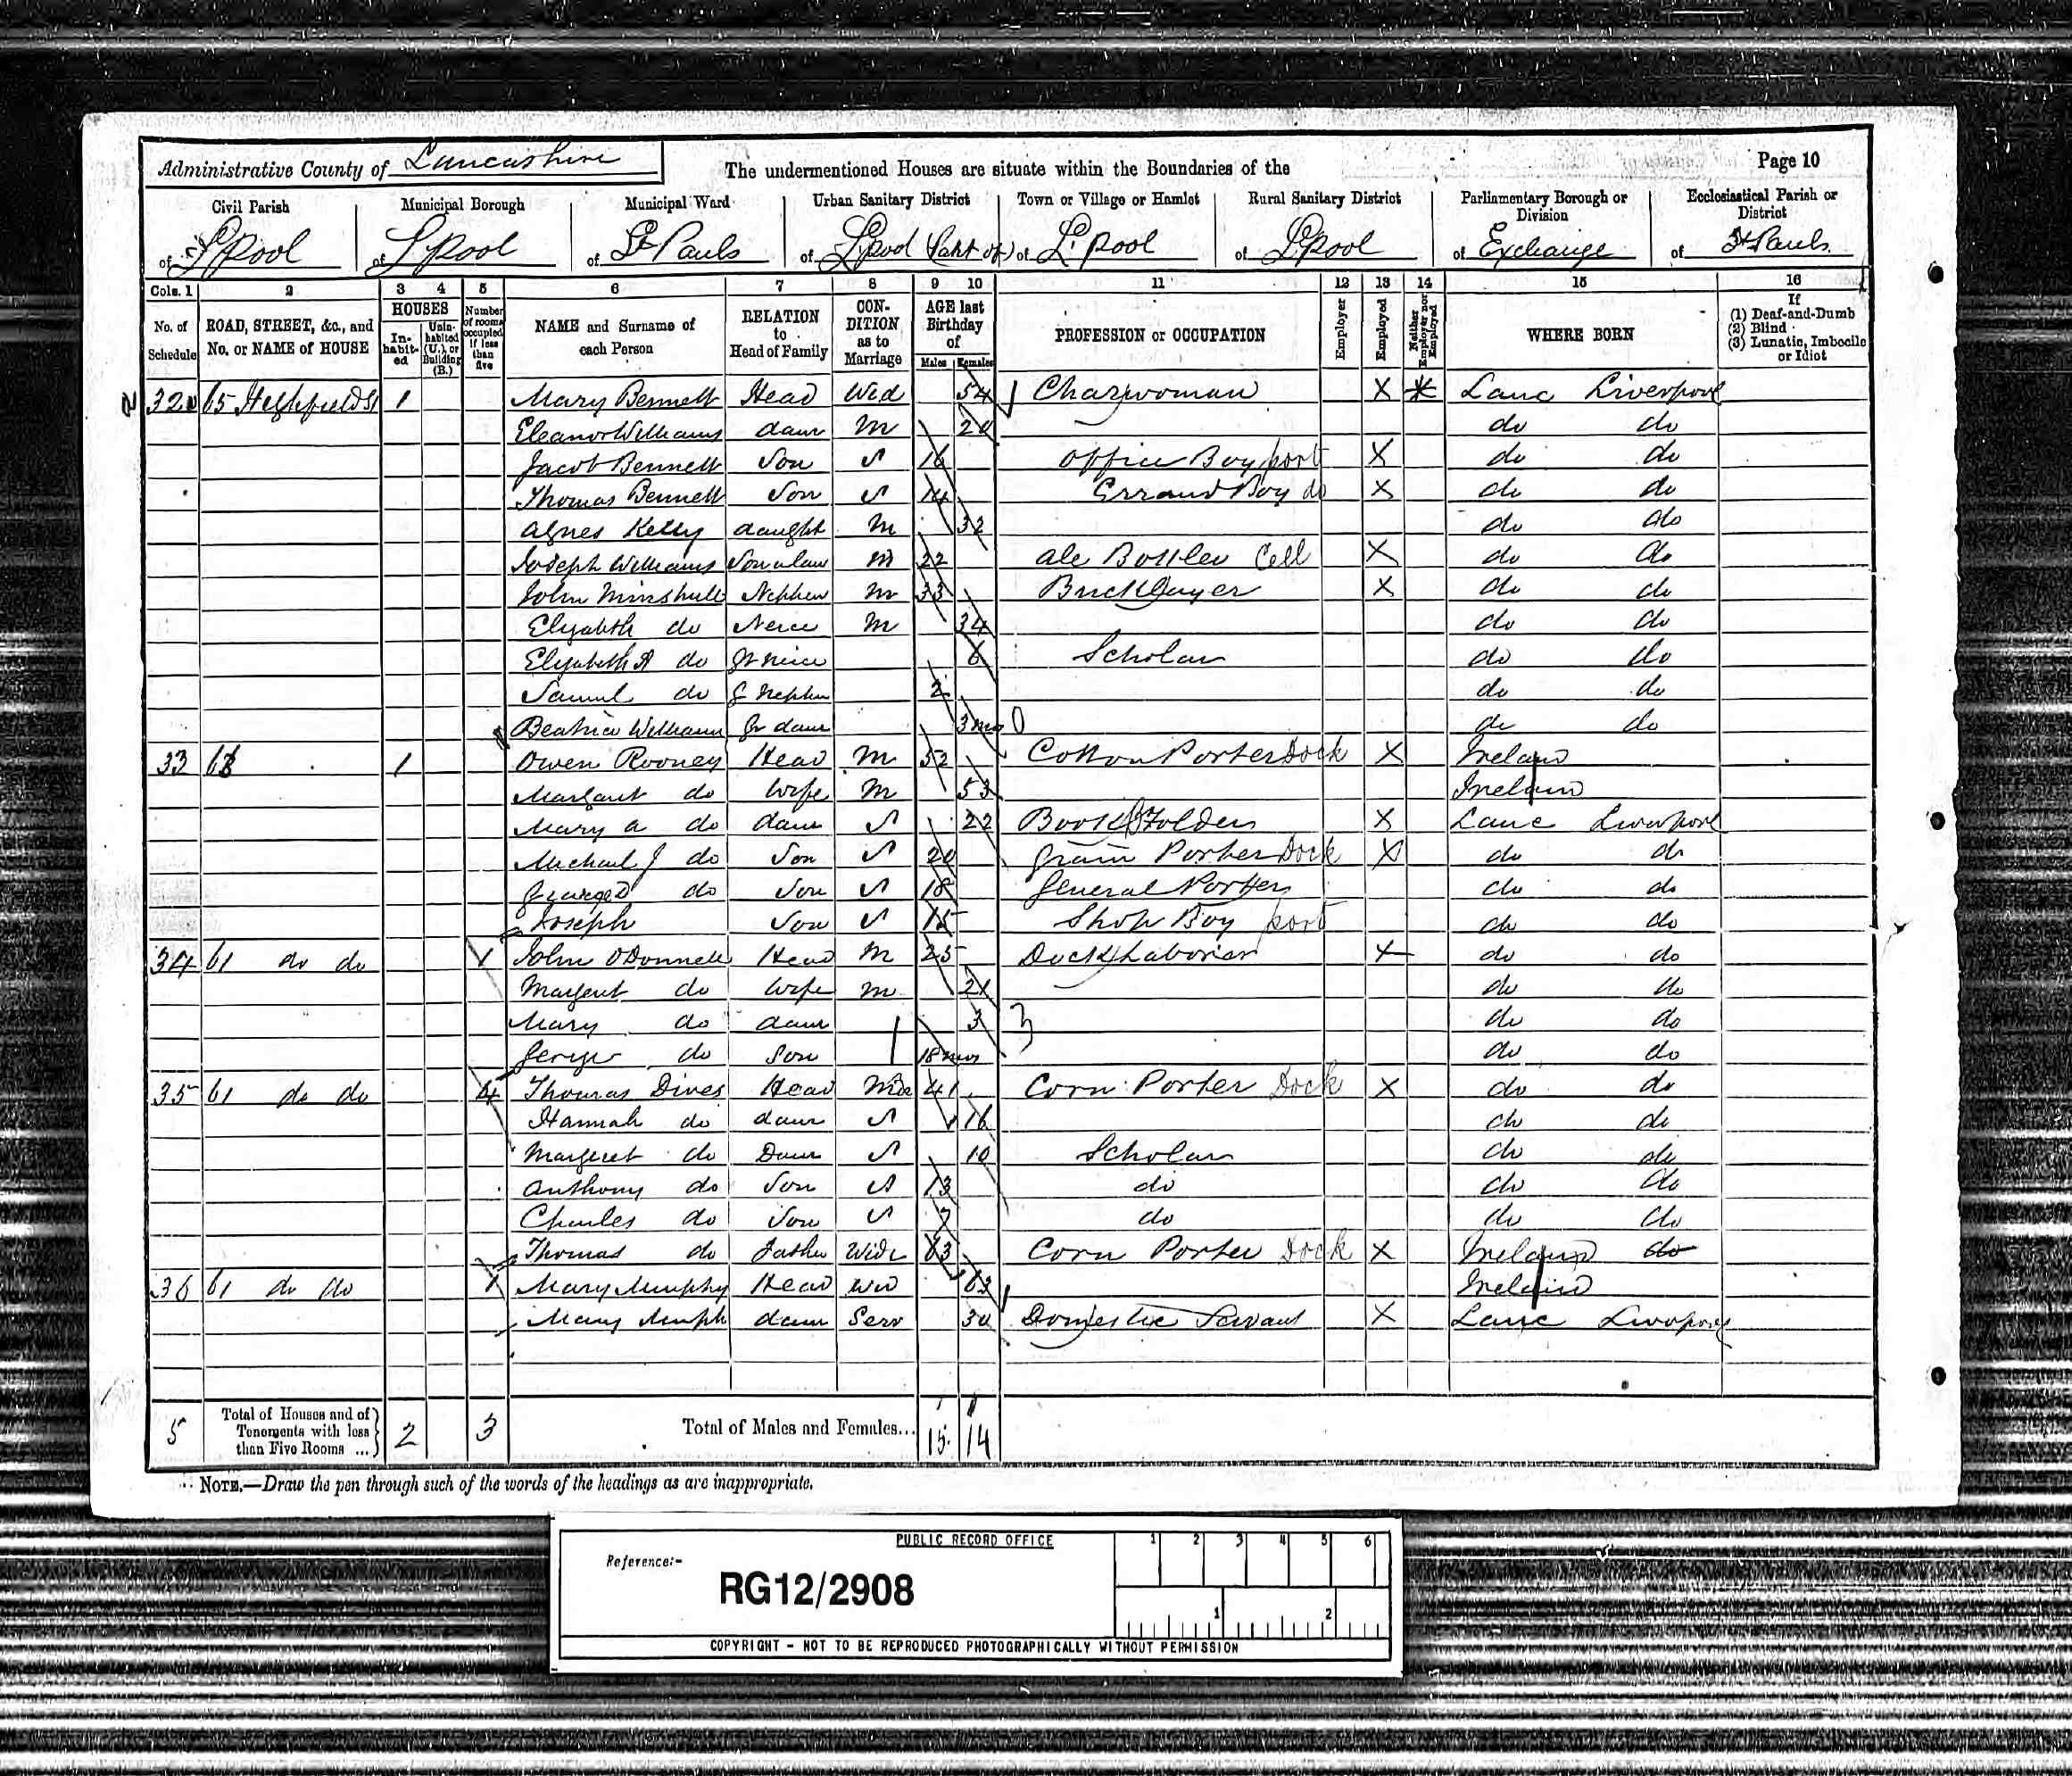 Administrative County of Lancashire The undermentioned Houses are situate within the Boundaries of the Page 10
Civil Parish Municipal Borough Municipal Ward Urban Sanitary District Town or Village or Hamlet Rural Sanitary District Parliamentary Borough or Division Ecclesiastical Parish or District
of L'pool of L'pool of St Pauls of L'pool (Part of) of L'pool of L'pool of Exchange of St Pauls
Cols. 1 2 3 4 5 6 7 8 9 10 11 12 13 14 15 16
No. of Schedule ROAD, STREET, &c., and No. or NAME of HOUSE HOUSES Inhabited Uninhabited (U.), or Building (B.) Number of rooms occupied if less than five NAME and Surname of each Person RELATION to Head of Family CONDITION as to Marriage AGE last Birthday of Males Females PROFESSION or OCCUPATION Employer Employed Neither Employer nor Employed WHERE BORN If (1) Deaf-and-Dumb (2) Blind (3) Lunatic, Imbecile or Idiot
32 65 Highfield St 1 Mary Bennett Head Wid 54 Charwoman X Lanc Liverpool
Eleanor Williams daur M 20 do do
Jacob Bennett Son S 16 Office Boy port X do do
Thomas Bennett Son S 14 Errand Boy do X do do
Agnes Kelly daught M 32 do do
Joseph Williams Son n law M 22 ale Bottler Cell X do do
John Minshull Nephew M 33 Bricklayer X do do
Elizabeth do Neice M 34 do do
Elizabeth A do Gr neice 6 Scholar do do
Samul do G Nephw 2 do do
Beatrice Williams Gr daur 3 mos do do
33 63 1 Owen Rooney Head M 52 Cotton Porter Dock X Ireland
Margaret do Wife M 53 Ireland
Mary a do daur S 22 Book Folder X Lanc Liverpool
Michael J do Son S 20 Grain Porter Dock X do do
George D do Son S 18 General Porter do do
Joseph Son S 15 Shop Boy port do do
34 61 do do 1 John ODonnell Head M 25 Dock Laborer X do do
Margert do Wife M 21 do do
Mary do daur 3 do do
do Son 18 mos do do
35 61 do do 4 Thomas Dives Head 41 Corn Porter Dock X do do
Hannah do daur S 16 do do
Margeret do Daur S 10 Scholar do do
Anthony do Son S 13 do do do
Charles do Son S 7 do do do
Thomas do Father Widr 63 Corn Porter Dock X Ireland do
36 61 do do 1 Mary Murphy Head Wid 63 Ireland
Mary Murph daur Serv 30 Domestic Servant X Lanc Liverpool
5 Total of Houses and of Tenements with less than Five Rooms ... 2 3 Total of Males and Females... 15 14
NOTE.—Draw the pen through such of the words of the headings as are inappropriate.
PUBLIC RECORD OFFICE 1 2 3 4 5 6
Reference:-
RG12/2908
1 2
COPYRIGHT - NOT TO BE REPRODUCED PHOTOGRAPHICALLY WITHOUT PERMISSION